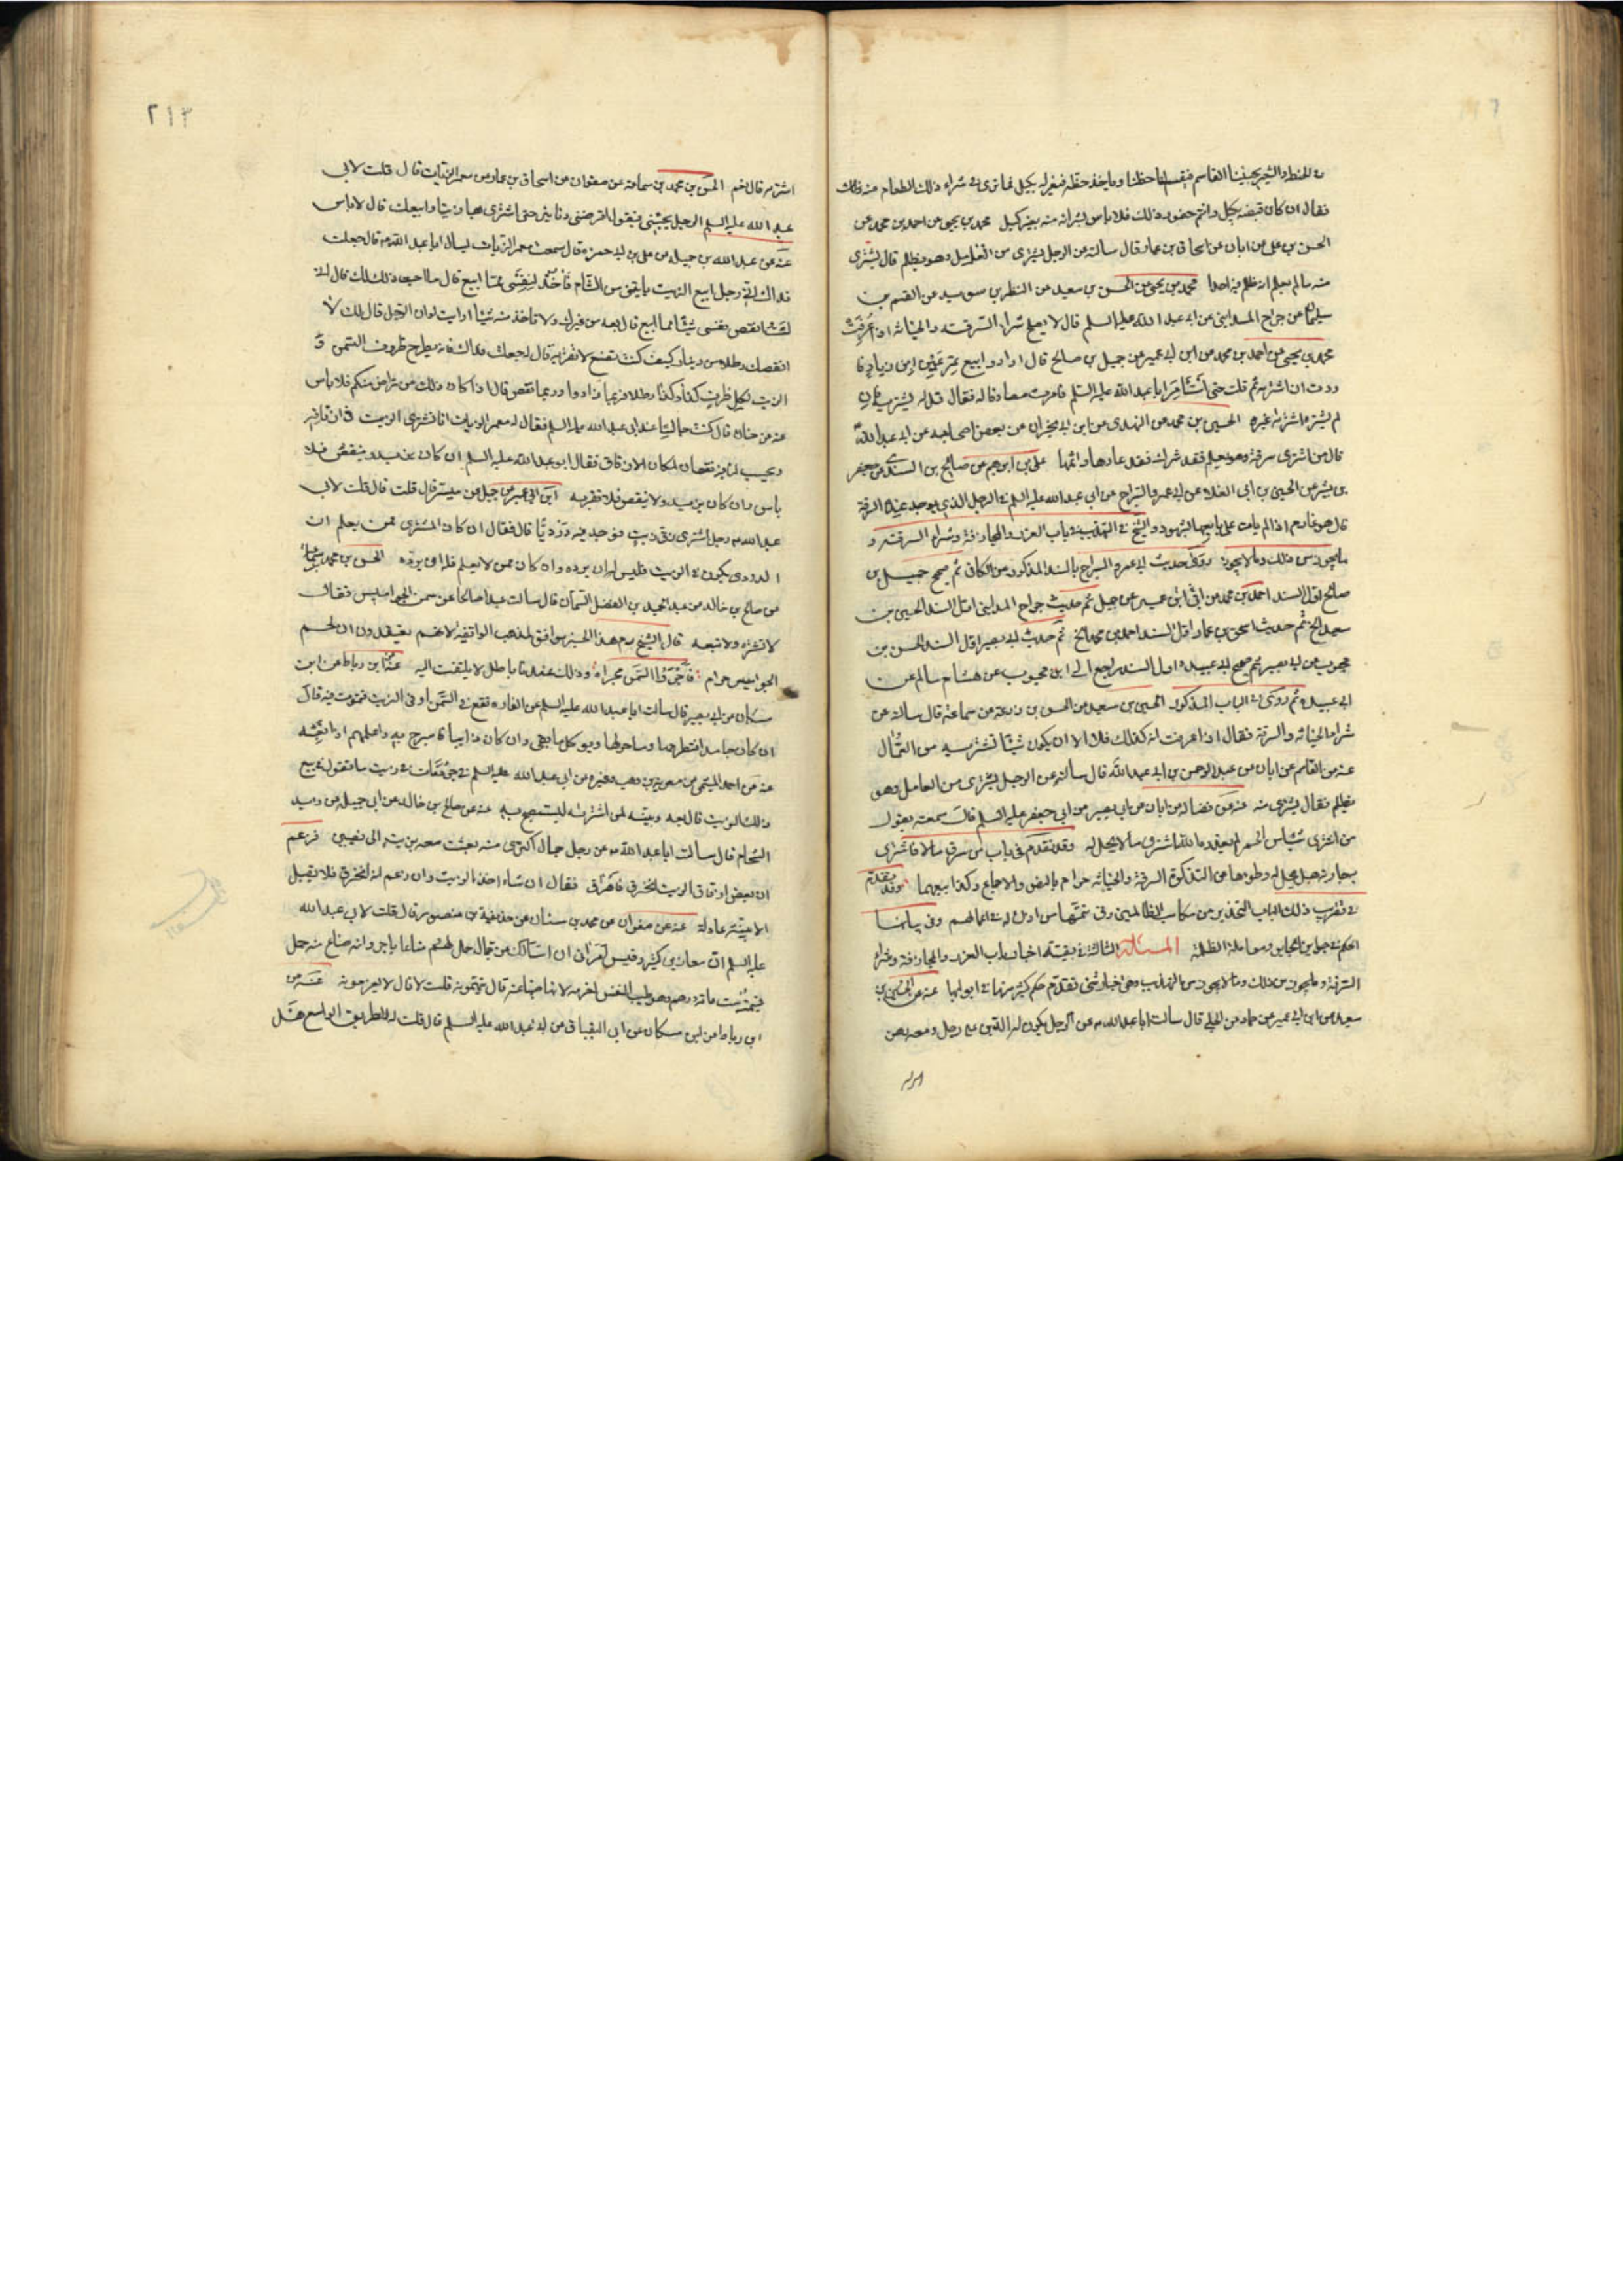 فقال ان كان قبضه بكيل وانتم حضور ذلك فلا باس بشرائه منه بغير كيل محمد بن يحيى عن احمد بن محمد عن
الحسن بن علي عن ابان عن اسحاق بن عمار قال سالته عن الرجل يشترى من العامل وهو يظلم قال يشترى
منه ما لم يعلم انه ظلم فيه احدا محمد بن يحيى عن الحسين بن سعيد عن النضر بن سويد عن القسم بن
سليمان عن جراح المدايني عن ابي عبد الله عليه السلم قال لا يصلح شراء السرقة والخيانة اذا عرفت
محمد بن يحيى عن احمد بن محمد عن ابن ابي عمير عن جميل بن صالح قال ارادوا بيع تمر عين ابن زياد فا
ردت ان اشتريه ثم قلت حتى استامر ابا عبد الله عليه السلم فامرت مصادفا له فقال قل له يشتريه فان
لم يشتره اشتراه غيره الحسين بن محمد عن النهدى عن ابن ابي نجران عن بعض اصحابه عن ابي عبد الله
قال من اشترى سرقة وهو يعلم فقد شرك في عارها واثمها علي بن ابرهيم عن صالح بن السندى عن جعفر
بن بشير عن الحسين بن ابي العلاء عن ابي عمر السراج عن ابي عبد الله عليه السلم في الرجل الذي يوجد عنده السرقة
قال هو غارم اذا لم يات على بايعها الشهود والشيخ في التهذيب في باب الغرر والمجازفة وشراء السرقة و
ما يجوز من ذلك وما لا يجوز روى حديث ابي عمر السراج بالسند المذكور من الكافي ثم صحيح جميل بن
صالح اول السند احمد بن محمد عن ابن ابي عمير عن جميل ثم حديث جراح المدايني اول السند الحسين بن
سعيد الخ ثم حديث اسحق بن عمار اول السند احمد بن محمد الخ ثم حديث ابي بصير اول السند الحسن بن
محبوب عن ابي بصير ثم صحيح ابي عبيدة واول السند راجع الى ابن محبوب عن هشام بن سالم عن
ابي عبيدة ثم روى في الباب المذكور الحسين بن سعيد عن الحسن عن زرعة عن سماعة قال سالته عن
شراء الخيانة والسرقة فقال اذا عرفت انه كذلك فلا الا ان يكون شيئا تشتريه من العمال
عنه عن القاسم عن ابان عن عبد الرحمن بن ابي عبد الله قال سالته عن الرجل يشترى من العامل وهو
يظلم فقال يشترى منه عنه عن فضالة عن ابان عن ابي بصير عن ابي جعفر عليه السلم قال سمعته يقول
الحكم في جوايز الجابر ومعاملة الظلمة المسئلة الثالثة في بقية اخبار باب الغرر والمجازفة وشراء
السرقة وما يجوز من ذلك وما لا يجوز من التهذيب وهي اخبار شتى تقدم حكم كثير منها في ابوابها عنه عن الحسين بن
سعيد عن ابن ابي عمير عن حماد عن الحلبي قال سالت ابا عبد الله عن الرجل يكون له الدين على رجل ومعه رهن
٢١٣
اشتريه قال نعم الحسن بن محمد بن سماعة عن صفوان عن اسحاق بن عمار عن معمر الزيات قال قلت لابي
عبد الله عليه السلم الرجل يجيئني فيقول اقرضني دنانير حتى اشترى بها زيتا وابيعك قال لا باس
عنه عن عبد الله بن جبلة عن علي بن ابي حمزة قال سمعت معمر الزيات يسال ابا عبد الله قال جعلت
فداك اني رجل ابيع الزيت ياتيني من الشام فآخذ لنفسي مما ابيع قال ما احب ذلك لك قال اني
لست انقص نفسي شيئا مما ابيع قال بعه من غيرك ولا تاخذ منه شيئا ارايت لو ان الرجل قال لك لا
انقصك رطلا من دينار كيف كنت تصنع لا تقربه قال له جعلت فداك فانه يطرح ظروف السمن و
الزيت لكل ظرف كذا وكذا رطلا فربما زاد وربما نقص قال اذا كان ذلك عن تراض منكم فلا باس
عنه عن حنان قال كنت جالسا عند ابي عبد الله عليه السلم فقال له معمر الزيات انا نشترى الزيت في ازقاقه
ويحسب لنا فيه نقصان لمكان الازقاق فقال ابو عبد الله عليه السلم ان كان يزيد وينقص فلا
باس وان كان يزيد ولا ينقص فلا تقربه ابن ابي عمير عن جميل عن ميسر قال قلت لابي
عبد الله رجل اشترى زق زيت فوجد فيه درديا قال فقال ان كان المشترى ممن يعلم ان
الدردى يكون في الزيت فليس له ان يرده وان كان ممن لا يعلم فله ان يرده الحسن بن محمد بن سماعة
عن صالح بن خالد عن عبد الحميد بن المفضل السمان قال سالت عبدا صالحا عن سمن الجواميس فقال
لا تشتره ولا تبعه قال الشيخ هذا الخبر موافق لمذهب الواقفية لانهم يعتقدون ان لحم
الجواميس حرام فاجروا السمن مجراه وذلك عندنا باطل لا يلتفت اليه عنه عن ابن رباط عن ابن
مسكان عن ابي بصير قال سالت ابا عبد الله عليه السلم عن الفارة تقع في السمن او في الزيت فتموت فيه قال
ان كان جامدا فتطرحها وما حولها ويوكل ما بقي وان كان ذائبا فاسرج به واعلمهم اذا بعته
عنه عن احمد الميثمي عن معوية بن وهب وغيره عن ابي عبد الله عليه السلم في جرذ مات في زيت ما تقول في بيع
ذلك الزيت قال بعه وبينه لمن اشتراه ليستصبح به عنه عن صالح بن خالد عن ابي جميلة عن زيد
الشحام قال سالت ابا عبد الله عن رجل جمال اكترى منه بعث معه بزيت الى نصيبين فزعم
ان بعض ازقاق الزيت انخرق فاهراق فقال ان شاء اخذ الزيت وان زعم انه انخرق فلا يقبل
الا ببينة عادلة عنه عن صفوان عن محمد بن سنان عن حذيفة بن منصور قال قلت لابي عبد الله
ابن رباط عن ابن مسكان عن ابي العباس البقباق عن ابي عبد الله عليه السلم قال قلت له الطريق الواسع هل